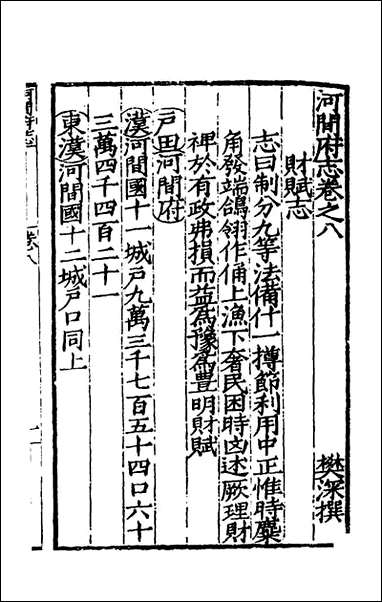 河間府志卷之八　樊深撰
財賦志
志曰制分九等法備什一撙節利用中正惟時麋
角發端鴿翎作俑上漁下奢民困時凶述厥理財
裨於有政弗損而益爲豫爲豊明財賦
戶田河間府
漢河間國十一城戶九萬三千七百五十四口六十
三萬四千四百二十一
東漢河間國十二城戶口同上
河間府志
卷八